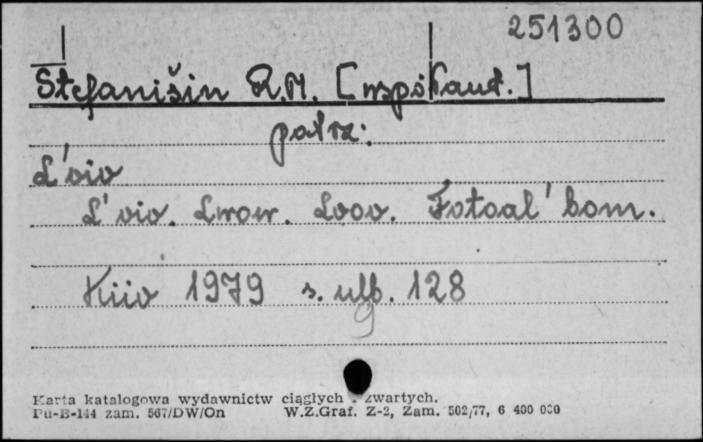 251300
Stefanišin R.M. [współaut.]
patrz:
L'viv
L'viv. Lwow. Lvov. Fotoal'bom.
Kiiv 1979 s. nlb. 128
9
Karta katalogowa wydawnictw ciągłych i zwartych.
Pu-B-144 zam. 567/DW/On W.Z.Graf. Z-2, Zam. 502/77, 6 400 000